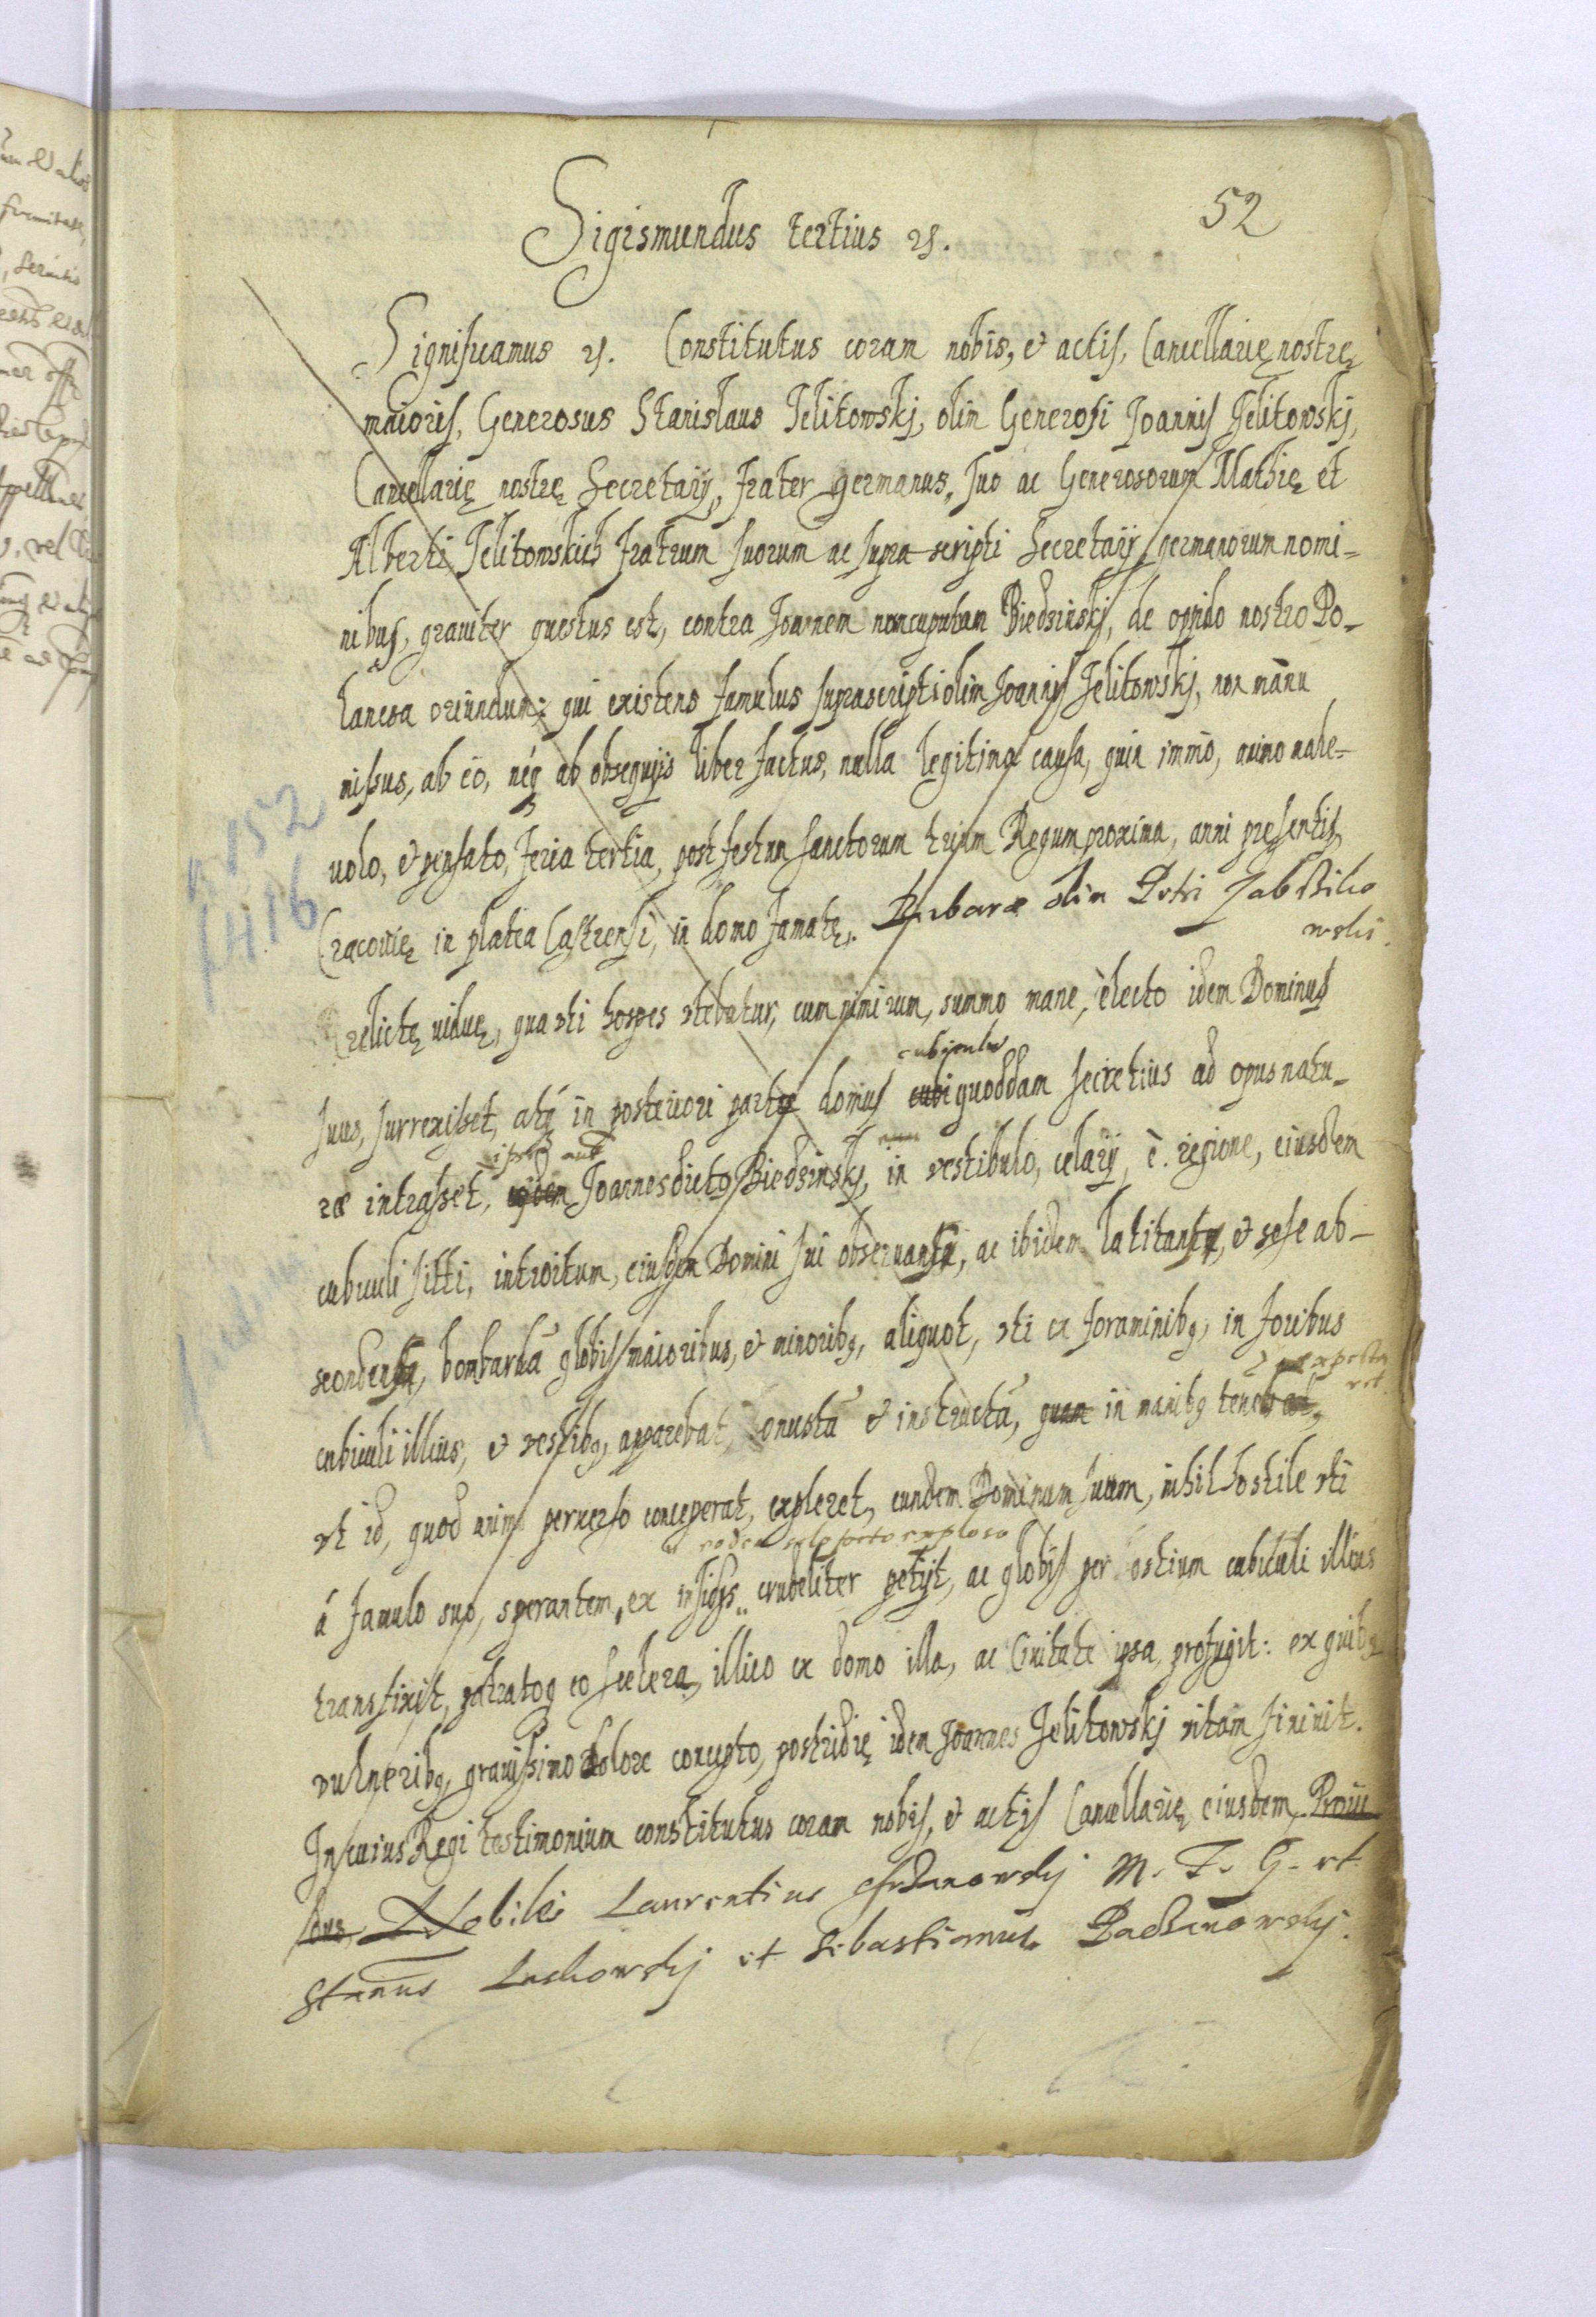 52
Sigismundus tertius etc.
Significamus etc. Constitutus coram nobis, et actis, Cancellarię nostrę
maioris, Generosus Stanislaus Jelitowskj, olim Generosi Joannis Jelitowskj,
Cancellarię nostrę Secretarij, frater germanus, suo ac Generosorum Mathię et
Alberti Jelitowskich fratrum suorum ac supra scripti Secretarij germanorum nomi-
nibus, grauiter questus est, contra Joannem nuncupatum Biedrzinskj, de oppido nostro Po-
lancza oriundum; qui existens famulus suprascripti olim Joannis Jelitowskj, non manu
missus, ab eo, neq ab obsequijs liber factus, nulla legitima causa, quin immo, animo male-
uolo, et pensato, feria tertia, post festum sanctorum trium Regum proxima, anni pręsentis,
Cracouię in platea Castrensi, in domo famatę. Barbarae olim Petri
wski.
relictę uiduę, qua vti hospes vtebatur, cum nimirum, summo mane, è lecto idem Dominus
cubiculum
suus, surrexisset, atq in posteriori parte domus cubi quoddam secretius ad opus natu-
ipse aut
rae intrasset, Joannes dicto Biedrzinskj, in vestibulo, celarij, è. regione, eiusdem
cubiculi sitti, introitum, eiusdem Domini sui ac ibidem et sese ab-
bombardā globis maioribus, et minoribq, aliquot, vti ex foraminibq, in foribus
cubiculi illius, et vestibq, apparebat, onustā et instructā, quam in manibq
vt id, quod animo peruerso conceperat, expleret, eundem Dominum suum, nihil hostile vti
eodem sclopeto exploso
á famulo suo, sperantem, ex insidijs crudeliter petijt, ac globis per ostium cubiculi illius
transfixit, patratoq eo scelere, illico ex domo illa, ac Ciuitate ipsa, profugit: ex quibq
vulneribq, grauissimo dolore concepto, postridię idem Joannes Jelitowskj vitam finiuit.
In cuius Regi testimonium constitutus coram nobis, et actis Cancellarię eiusdem, Proui
dus, Nobiles Laurentius M. F. G. et
Stanus Laskowskj et Sebastianus
152
1416